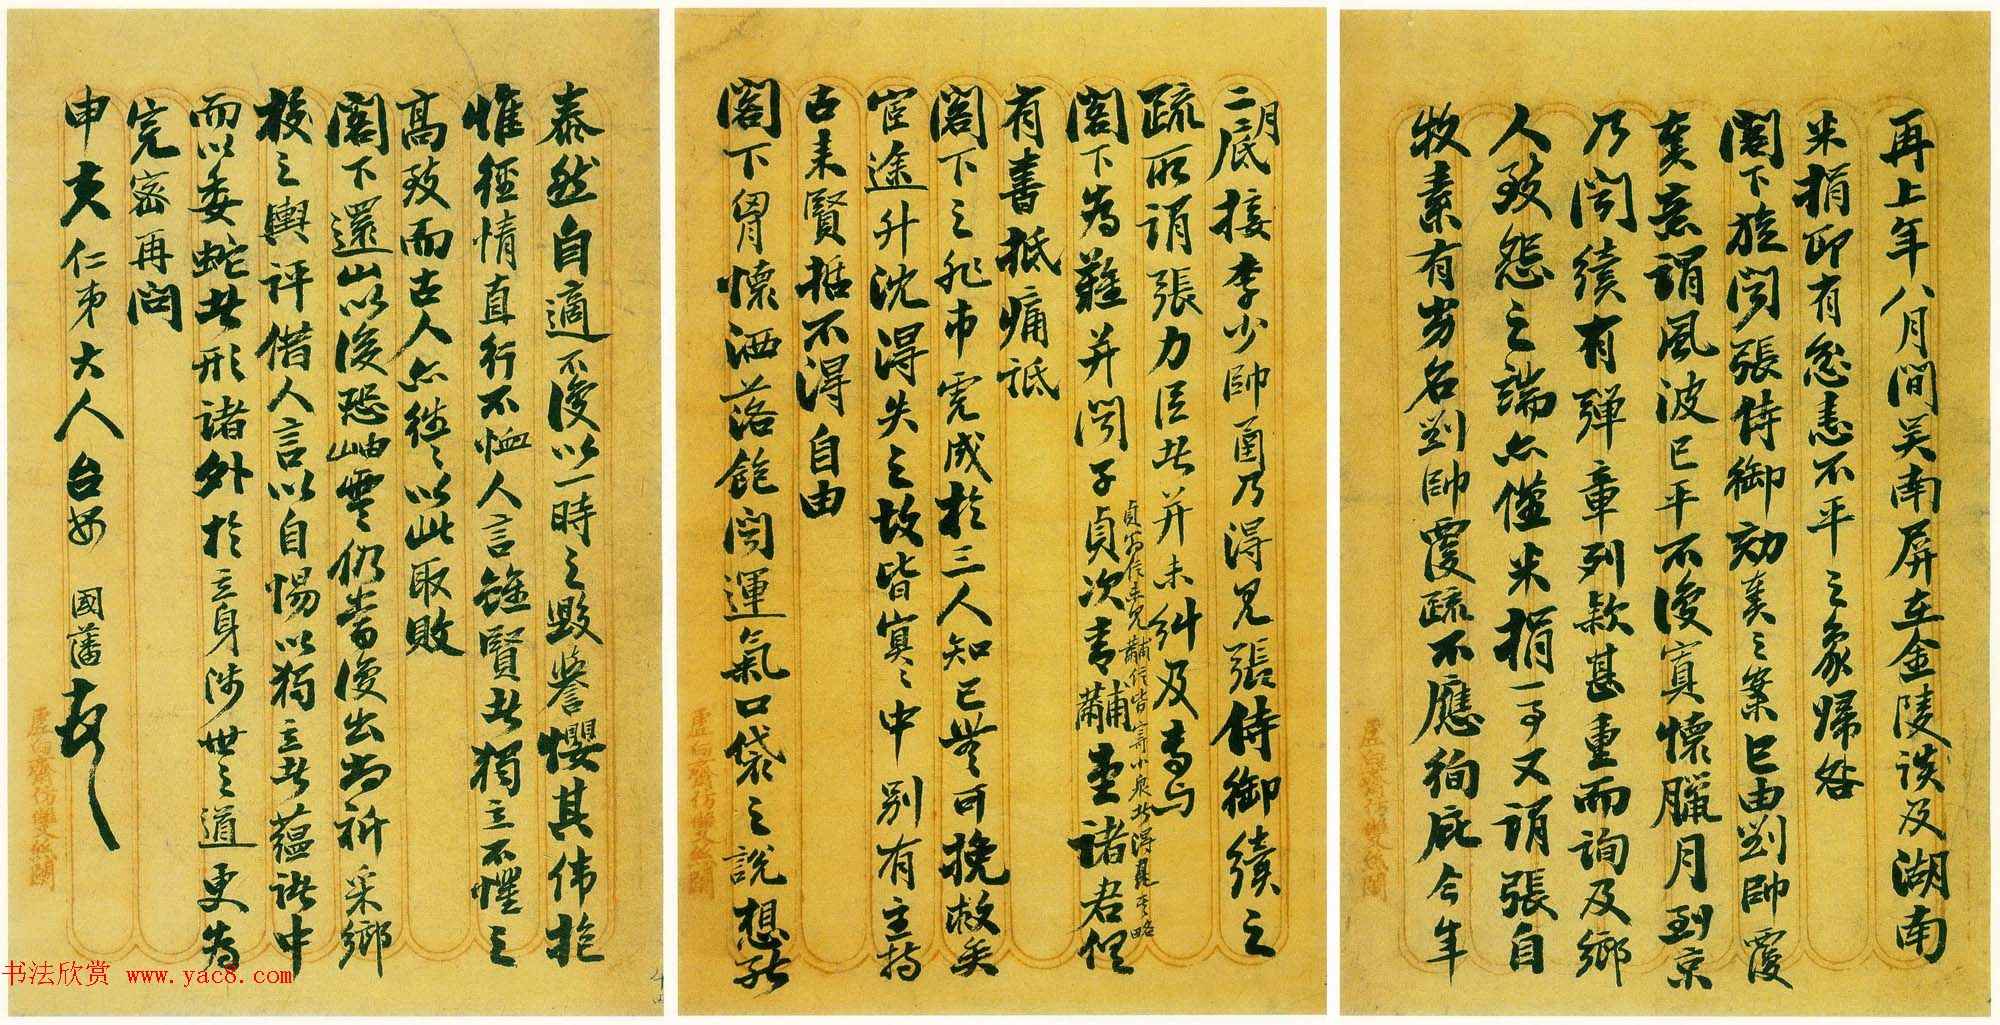 再上年八月間吴南屏在金陵谈及湖南
米捐即有忿恚不平之象歸咎
閣下旋閱張侍御劾奏之案已由劉帥覆
奏意謂風波已平不復寘懷臘月到京
乃閱續有彈章列款甚重而詢及鄉
人致怨之端亦僅米捐一事又謂張自
牧素有劣名劉帥覆疏不應徇庇今年
二月底接李少帥函乃得見張侍御續之
疏所謂張力臣者并未糾及專與
閣下為難并閱子貞次青黼堂諸君俱
貞寄信未見黼信皆寄小泉者得見其略
有書抵痛詆
閣下之非市虎成於三人知已無可挽救矣
宦途升沈得失之故皆冥冥中別有主持
古來賢哲不得自由
閣下胷懷洒落飽閱運氣口袋之說想能
泰然自適不復以一時之毀譽攖其伟抱
惟徑情直行不恤人言雖賢者獨立不懼之
高致而古人亦往往以此取敗
閣下還山以後恐岫雲仍當復出尚祈采鄉
校之輿評借人言以自惕以獨立者蘊諸中
而以委蛇者形諸外於立身涉世之道更為
完密再問
申夫仁弟大人台安 國藩頓
虛白齋仿蠻絲闌
虛白齋仿蠻絲闌
虛白齋仿蠻絲闌
书法欣赏 www.yac8.com